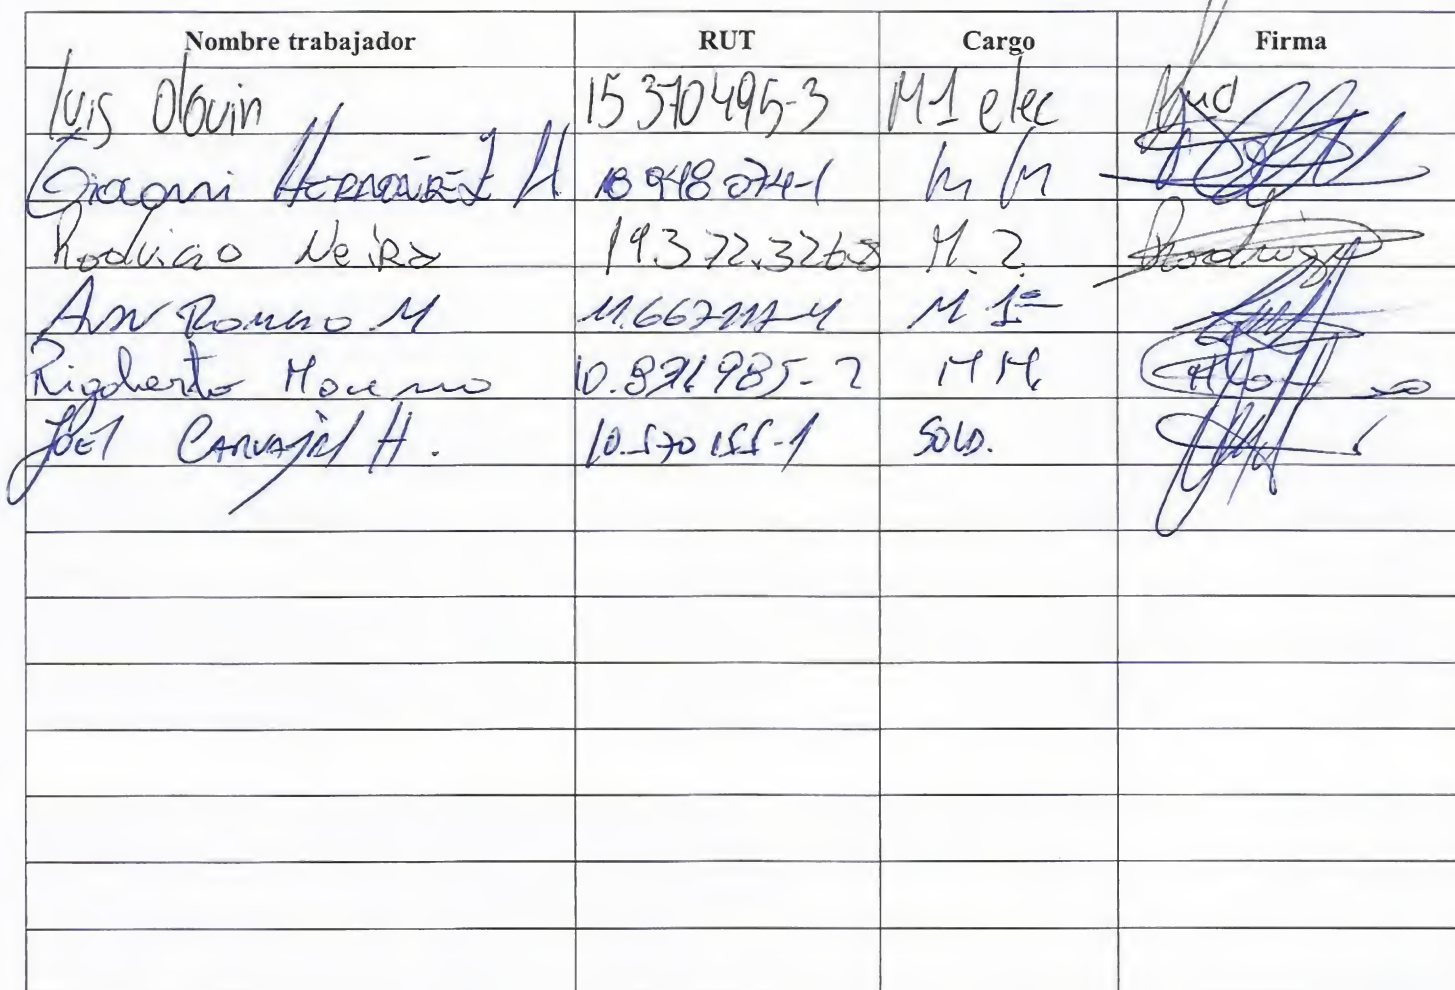 Nombre trabajador RUT Cargo Firma
Luis Olguin 15370495-3 M1 elec
Giacomi HERNANDEZ H 948 074-1 M M
Rodrigo Neira 19.372.326-8 M. 2. Rodrigo
Romero M M 1ª
Rigoberto Moreno 10.871.985-2 M M.
JOEL CARVAJAL H. 10.570 155-1 SOLD.